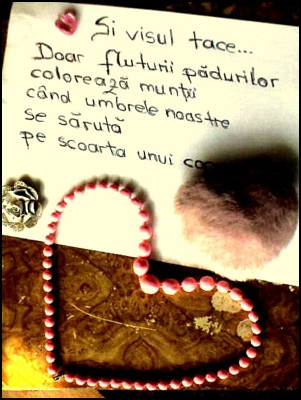 Și visul tace...
Doar fluturii pădurilor
colorează munții
când umbrele noastre
se sărută
pe scoarta unui